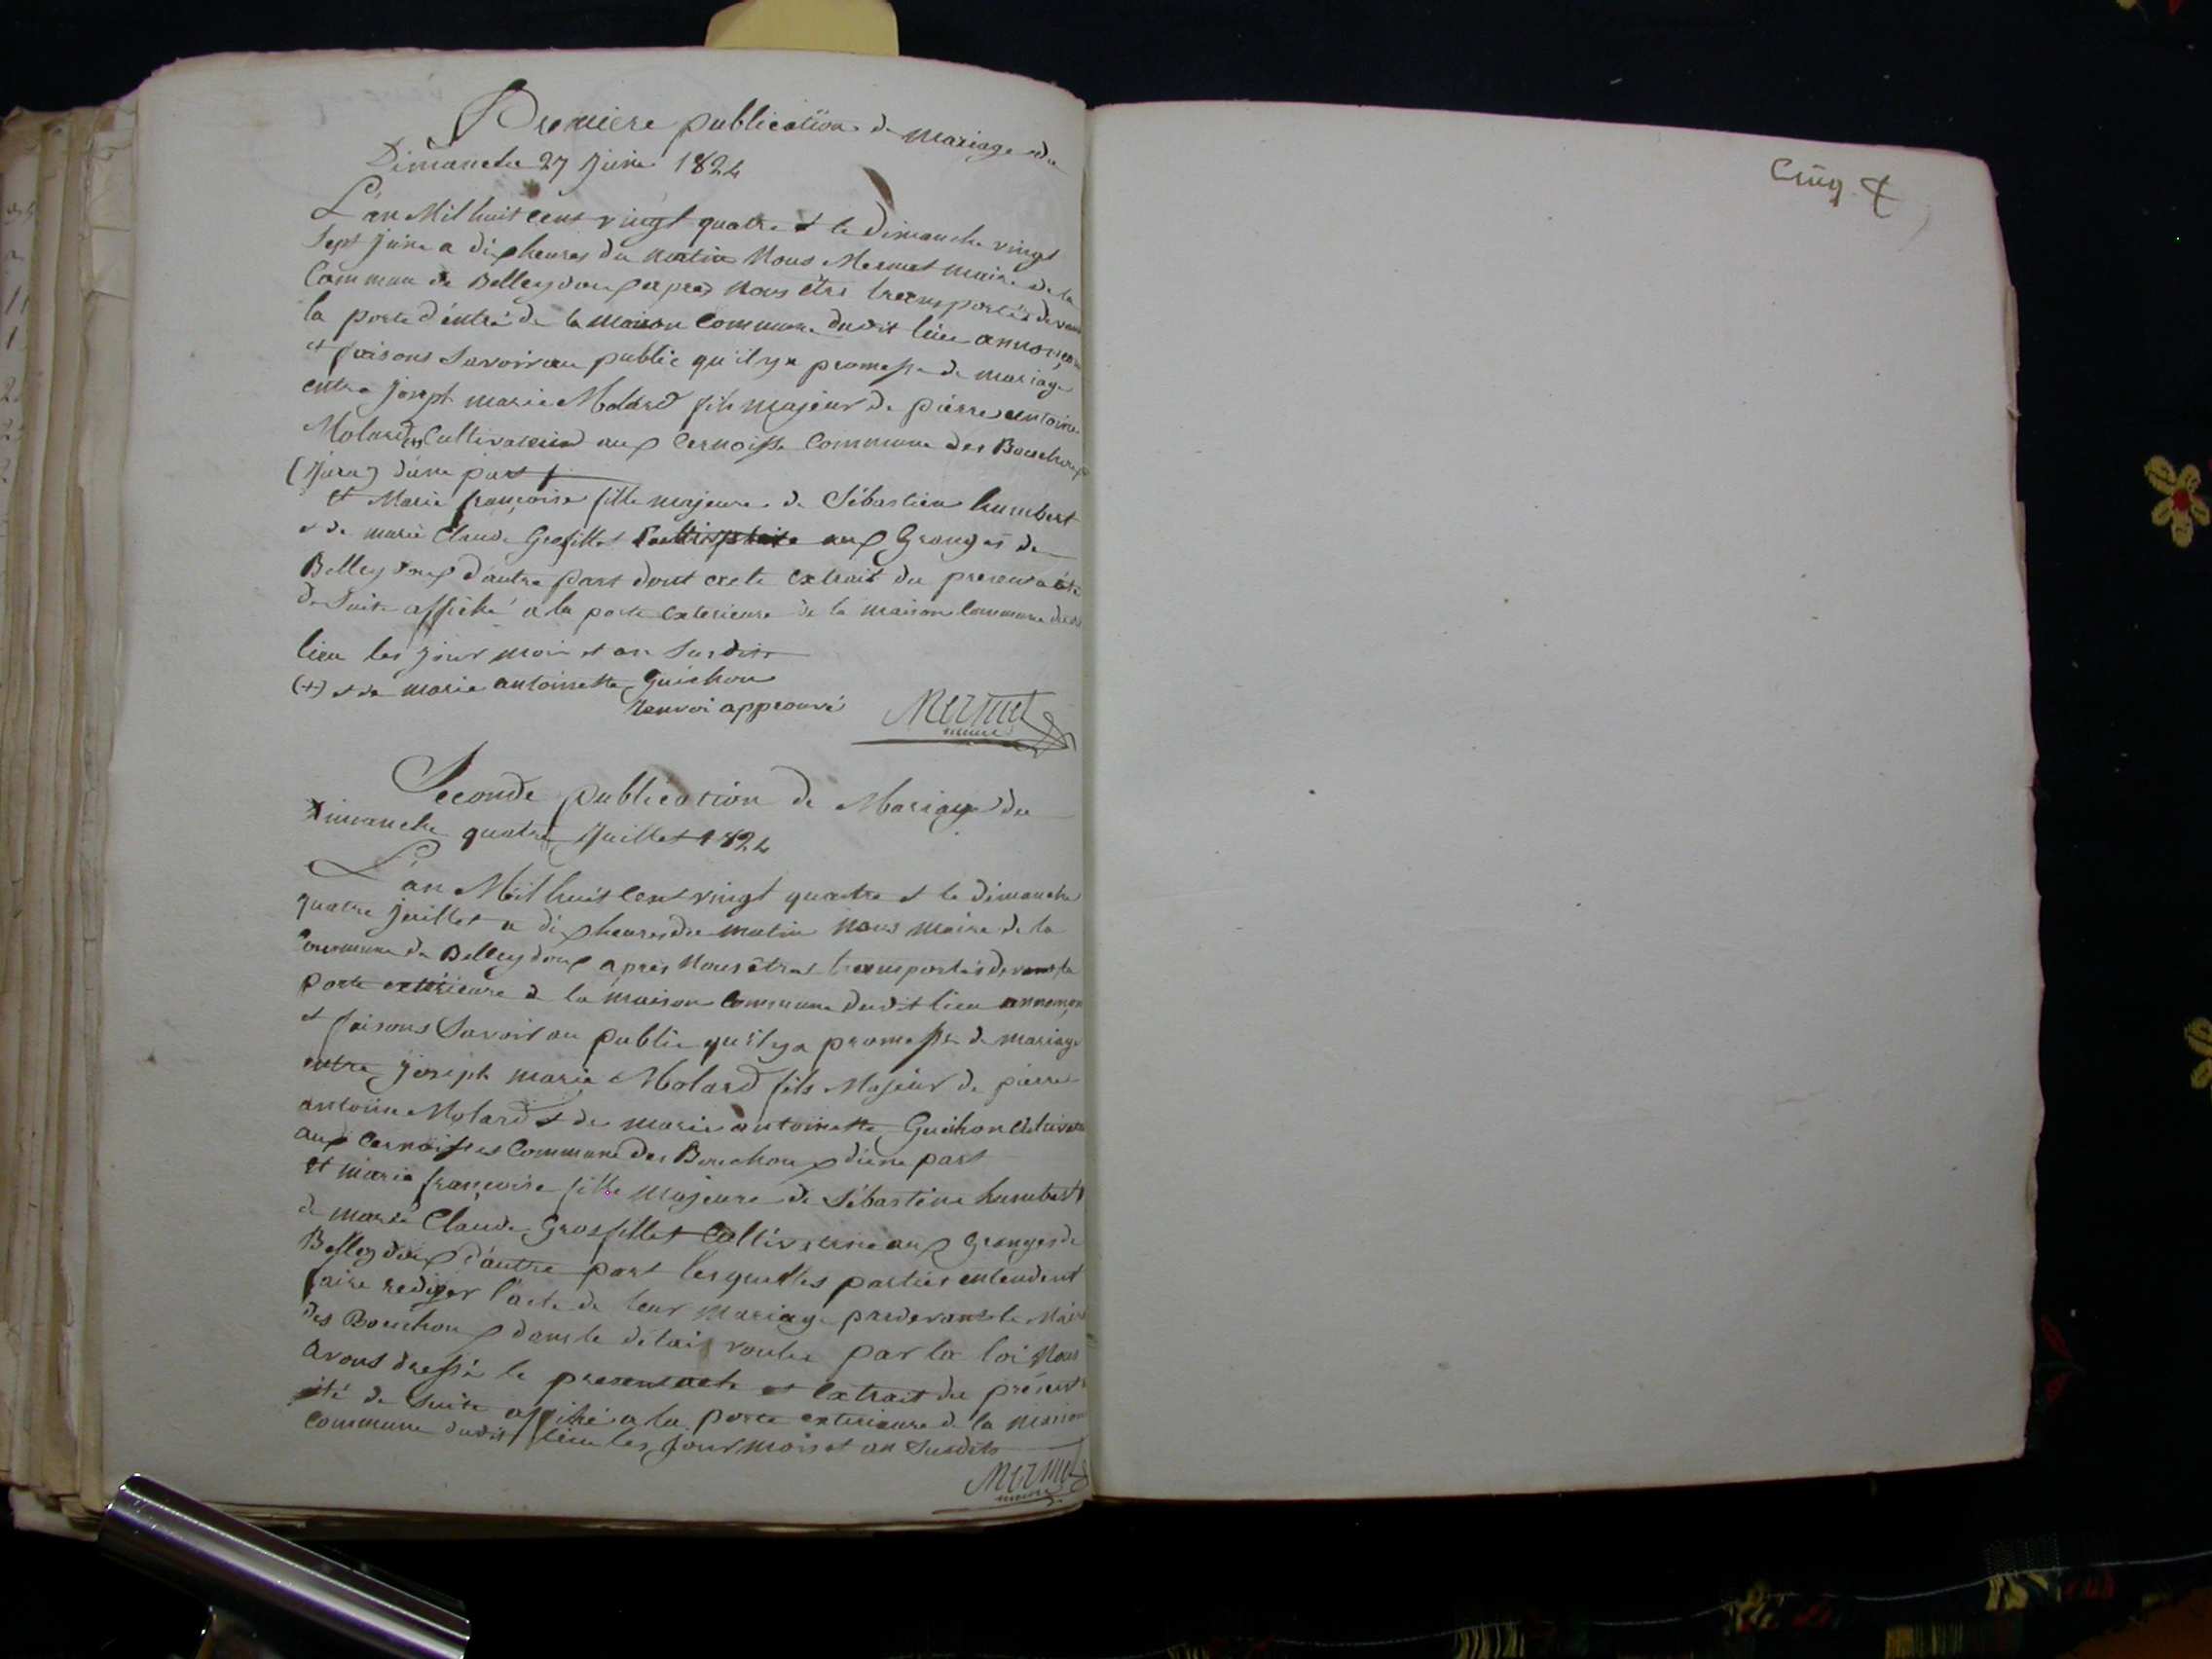 Premiere publication de mariage du
Dimanche 27 Juin 1824
L'an Mil huit cent vingt quatre et le dimanche vingt
Sept Juin a dix heures du matin Nous Mermet maire de la
Commune de Belleydoux apres nous être transportés devant
la porte d'entré de la maison commune dudit lieu annonçons
et faisons savoir au public qu'il y a promesse de mariage
entre joseph marie Molard fils majeur de pierre antoine
Molard (+) Cultivateur aux Cernoisse Commune des Bouchoux
(Jura) d'une part
et Marie françoise fille majeure de Sébastien humbert
et de marie Claude Grosfillet aux Granges de
Belleydoux d'autre part dont acte extrait du present a été
de Suite affiché a la porte exterieure de la maison commune dudit
lieu les jour mois et an susdits
(+) et de marie antoinette Guichon
Renvoi approuvé Mermet
maire
Seconde publication de Mariage du
Dimanche quatre Juillet 1824
L'an Mil huit cent vingt quatre et le dimanche
quatre juillet a dix heures du matin nous maire de la
Commune de Belleydoux après nous être transportés devant la
porte extérieure de la maison commune dudit lieu annonçons
et faisons savoir au public qu'il y a promesse de mariage
entre joseph marie Molard fils Majeur de pierre
antoine Molard et de marie antoinette Guichon Cultivateur
aux Cernoisses Commune des Bouchoux d'une part
et marie françoise fille majeure de Sébastien humbert
de marie Claude Grosfillet Cultivatrice aux Granges de
Belleydoux d'autre part lesquelles parties entendent
faire rediger l'acte de leur mariage pardevant le Maire
des Bouchoux dans le delais voulu par la loi Nous
avons dressé le present acte et extrait du présent a
été de suite affiché a la porte exterieure de la maison
commune dudit lieu les jour mois et an susdits
Mermet
maire
Cinq.